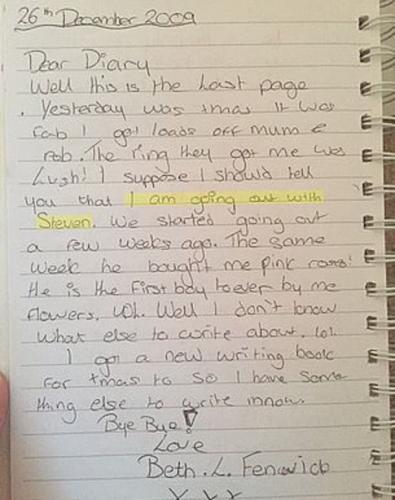 26th December 2009
Dear Diary
Well this is the last page
. Yesterday was xmas it was
fab I got loads off mum &
rob. The ring they got me was
Lush! I suppose I should tell
you that I am going out with
Steven. We started going out
a few weeks ago. The same
week he bought me pink roses!
He is the first boy to ever by me
flowers, lol. Well I don't know
what else to write about. lol.
I got a new writing book
for xmas to so I have some
thing else to write in now.
Bye Bye!
Love
Beth.L.Fenwick
x x x